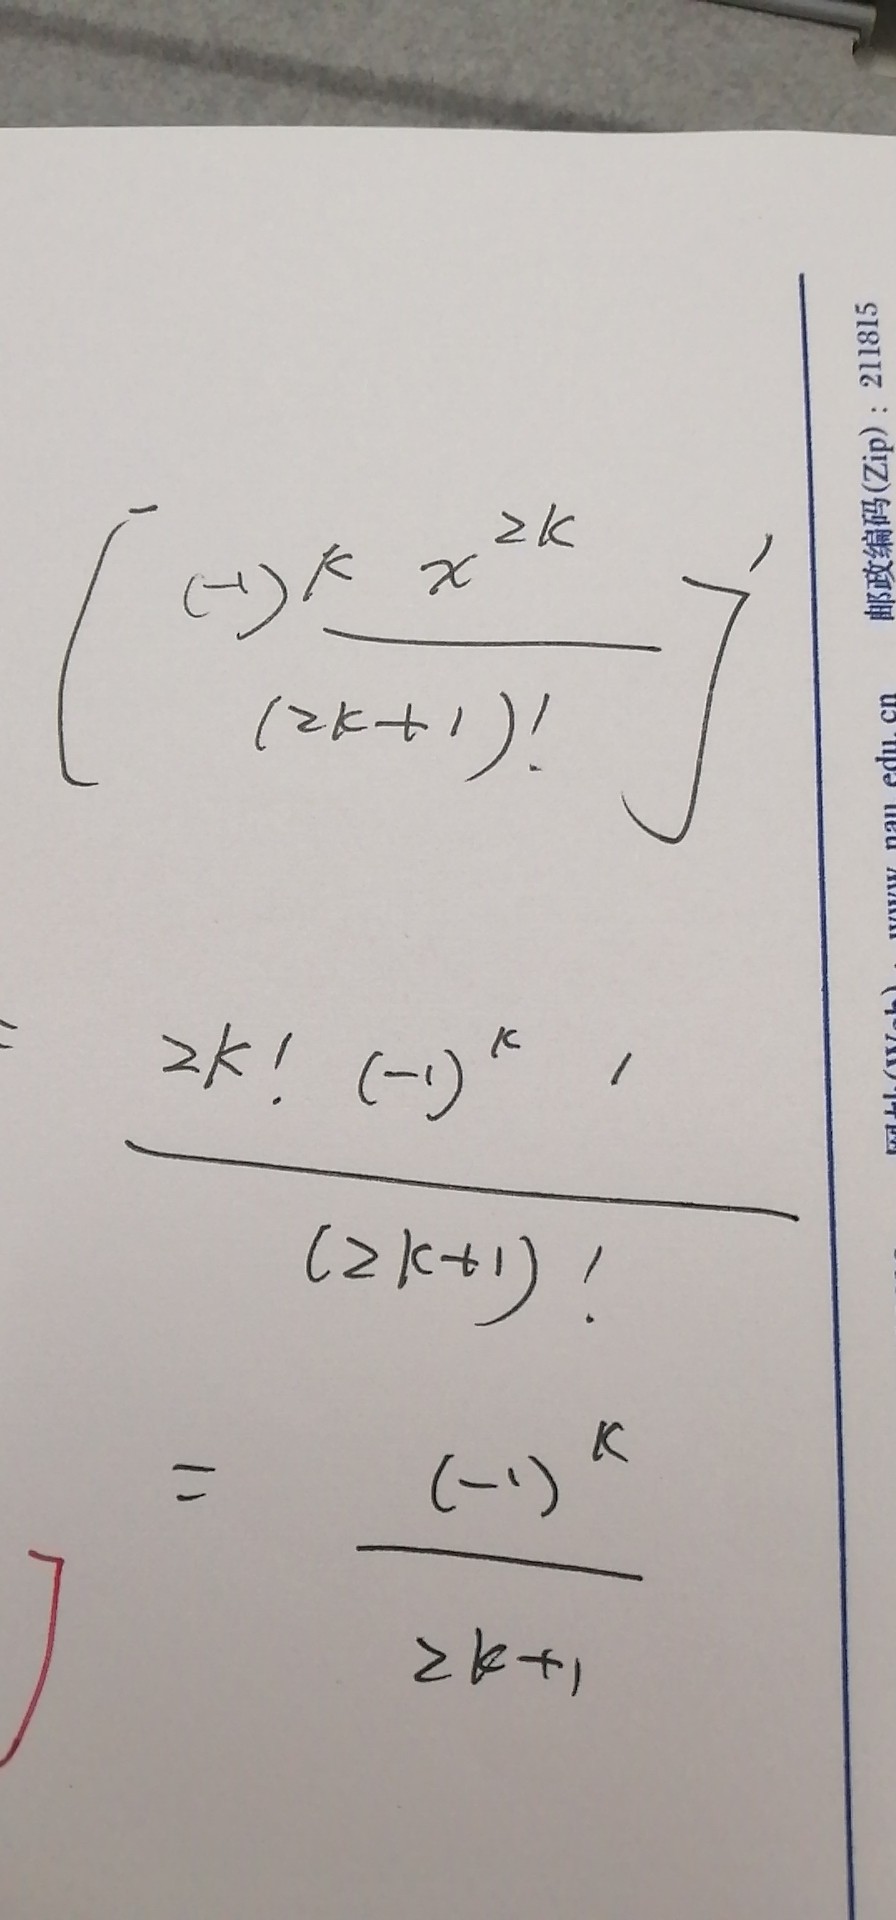 [(-1)^k x^{2k} / (2k+1)!]'
= 2k! (-1)^k ' / (2k+1)!
= (-1)^k / 2k+1
]
邮政编码(Zip): 211815
网址(Web): www.nau.edu.cn